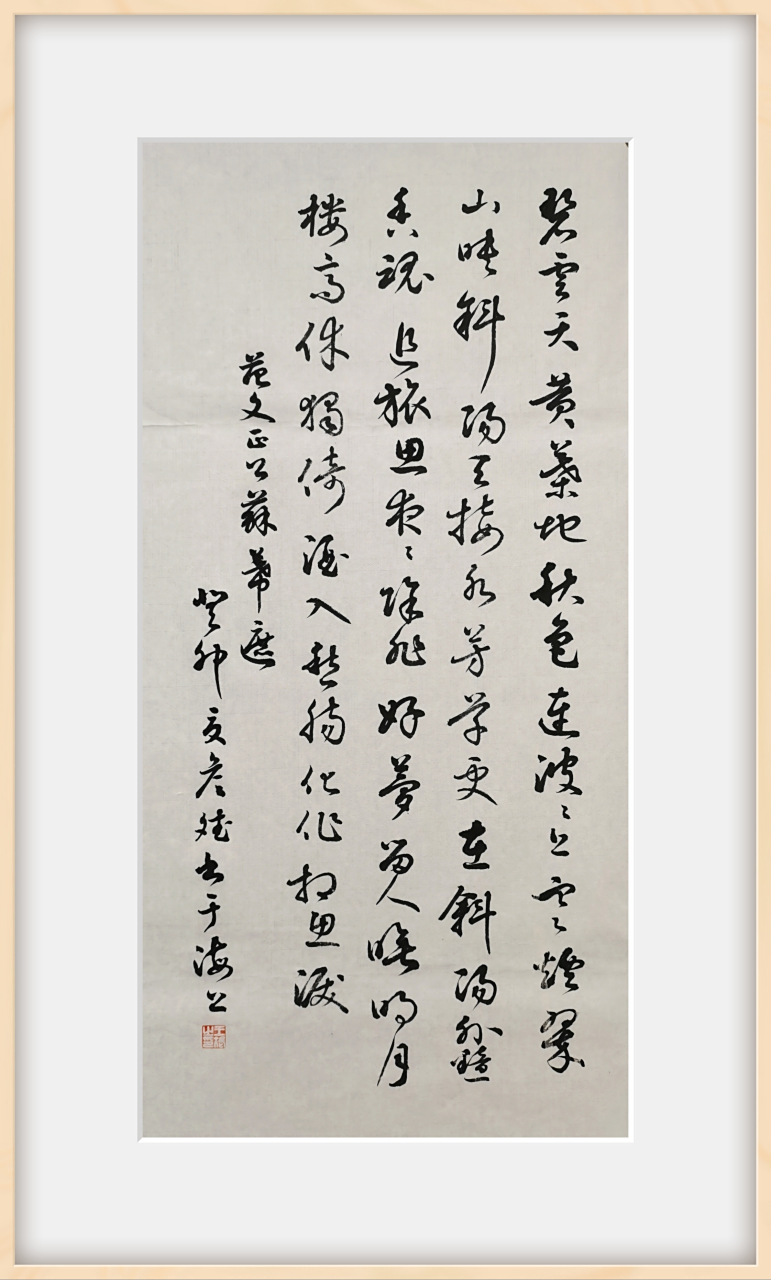 碧雲天黄葉地秋色連波〻上寒煙翠
山映斜陽天接水芳草更在斜陽外黯
鄉魂追旅思夜〻除非好夢留人睡明月
楼高休獨倚酒入愁腸化作相思淚
范文正公蘇幕遮
癸卯夏斌书于海上